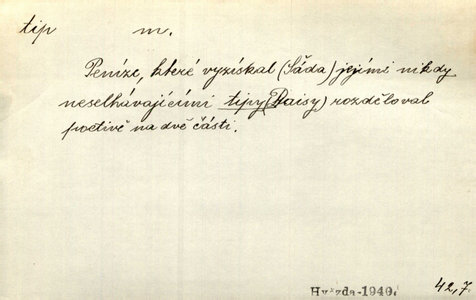 tip m.
Peníze, které vyzískal (Sáda) jejími nikdy
neselhávajícími tipy (Daisy) rozděloval
poctivě na dvě části.
Hvězda-1940. 42,7.